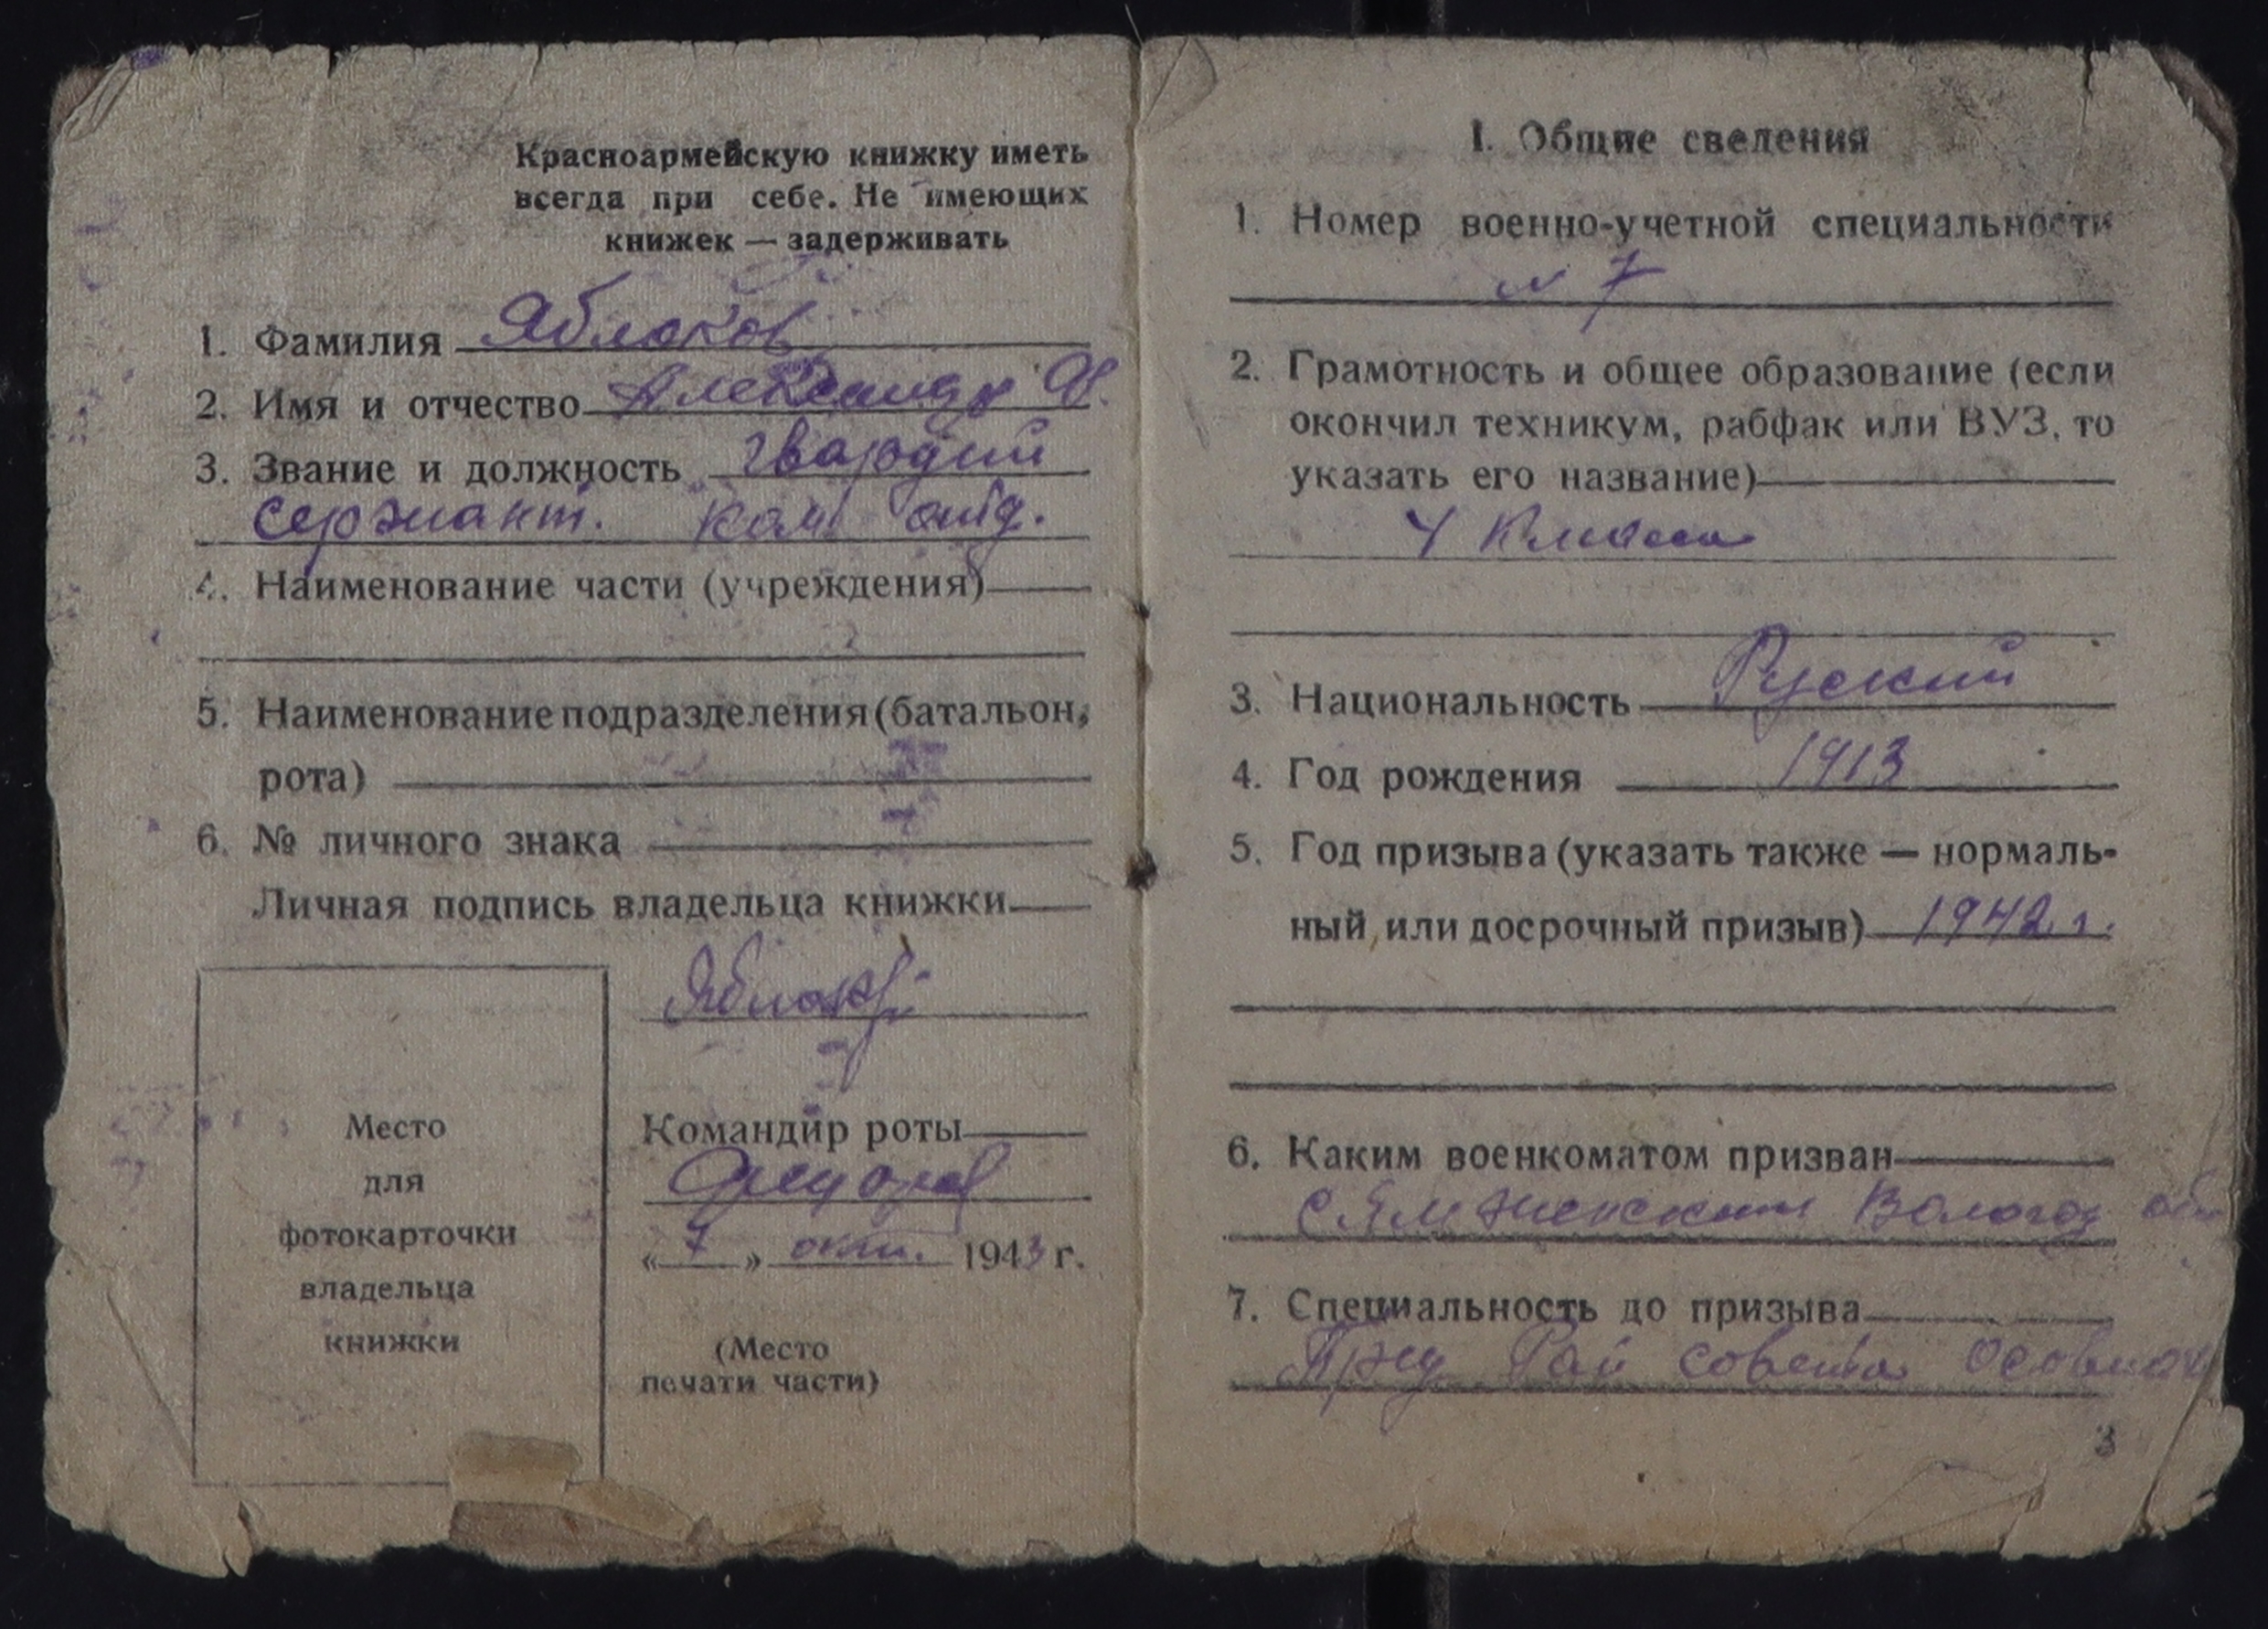 Красноармейскую книжку иметь
всегда при себе. Не имеющих
книжек — задерживать
1. Фамилия Яблоков
2. Имя и отчество Александр
3. Звание и должность гвардии
сержант. ком отд.
4. Наименование части (учреждения)
5. Наименование подразделения (батальон,
рота)
6. № личного знака
Личная подпись владельца книжки
Место
для
фотокарточки
владельца
книжки
Командир роты
«7» окт. 1943 г.
(Место
печати части)
I. Общие сведения
1. Номер военно-учетной специальности
№ 7
2. Грамотность и общее образование (если
окончил техникум, рабфак или ВУЗ, то
указать его название)
4 класса
3. Национальность Руский
4. Год рождения 1913
5. Год призыва (указать также — нормаль-
ный или досрочный призыв) 1942 г.
6. Каким военкоматом призван
Сямженским Вологод обл
7. Специальность до призыва
Пред Рай совета Осовиах
3